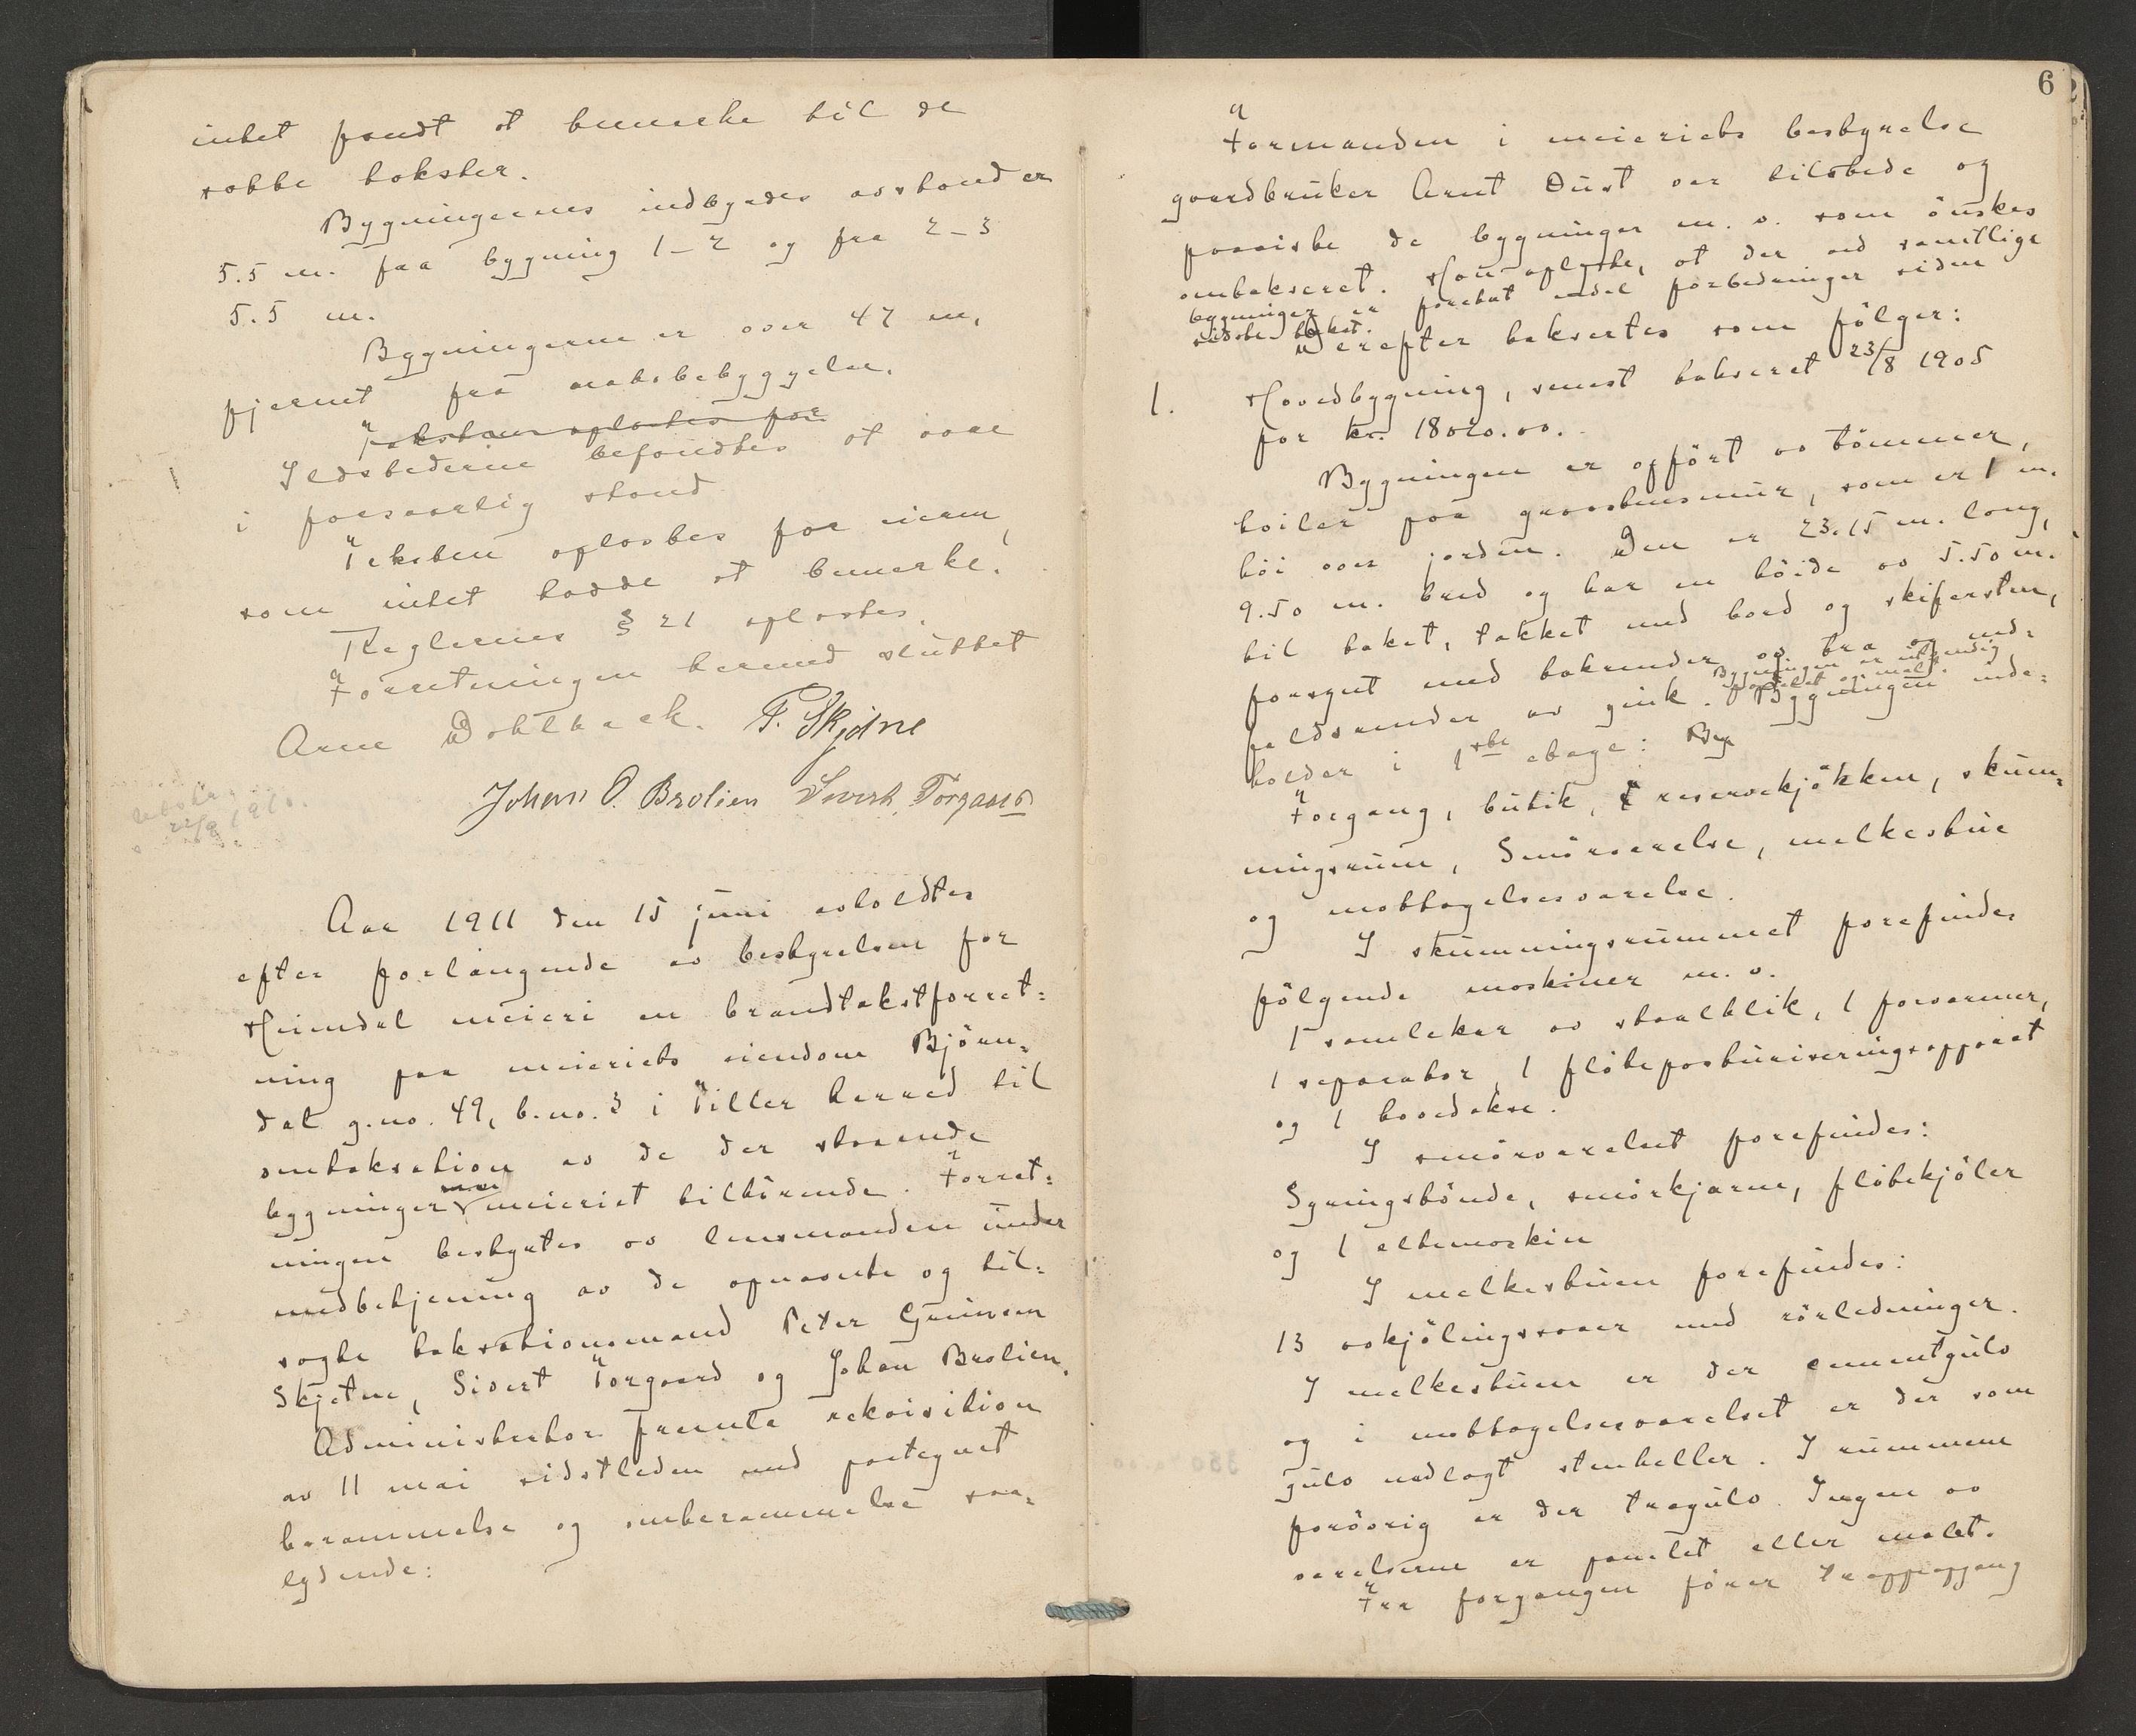 intet fandt at bemerke til de
satte takster.
Bygningernes indbyrdes avstand er
5.5 m. fra bygning 1-2 og fra 2-3
5.5 m.
Bygningerne er over 47 m.
fjernet fra nabobebyggelse.
Taksten oplæstes for
Ildstederne befandtes at være
i forsvarlig stand
Taksten oplæstes for eieren,
som intet hadde at bemerke.
Reglernes § 21 oplæstes.
Forretningen hermed sluttet
Arne Dahlback. P. Skjetne
Johan O. Brolien Sivert Torgaard
Utskr.
22/9 1910.
Aar 1911 den 15 juni avholdtes
efter forlangende av bestyrelsen for
Heimdal meieri en brandtakstforret=
ning paa meieriets eiendom Bjørn=
dal g.no. 49, b.no. 3 i Tiller herred til
omtaksation av de der staaende
bygninger meieriet tilhørende. Forret=
ningen bestyrtes av lensmanden under
medbetjening av de opnævnte og til=
sagte taksationsmænd Peter Gunnesen
Skjetne, Sivert Torgaard og Johan Brolien.
Administrator fremla rekvisition
av 11 mai sidstleden med paategnet
berammelse og omberammelse saa=
lydende:
6
Formanden i meieriets bestyrelse
gaardbruker Arnt Øust var tilstede og
paaviste de bygninger m. v. som ønskes
omtakseret. Han oplyste, at der ved samtlige
bygninger er foretat endel forbedringer siden
sidste takst.
Derefter taksertes som følger:
1. Hovedbygning, senest takseret 23/8 1905
for kr. 18020.00.
Bygningen er opført av tømmer,
hviler paa graastensmur, som er 1 m.
høi over jorden. Den er 23.15 m. lang,
9.50 m. bred og har en høide av 5.50 m.
til taket, tækket med bord og skifersten,
forsynt med takrender av træ og ned=
faldsrender av zink. Bygningen er utvendig
panelet og malt. Bygningen inde=
holder i 1ste etage: Byg
Forgang, butik, reservekjøkken, skum=
ningsrum, Smørværelse, melkestue
og mottagelsesværelse.
I skumningsrummet forefindes
følgende maskiner m. v.
1 samlekar av staalblik, 1 forvarmer,
1 separator, 1 fløtepasturiseringsapparat
og 1 hovedakse.
I smørværelset forefindes:
Syrningstønde, smørkjærne, fløtekjøler
og 1 eltemaskin
I melkestuen forefindes:
13 avkjølingsvaer med rørledninger.
I melkestuen er der cementgulv
og i mottagelsesværelset er der som
gulv nedlagt stenheller. I rummene
forøvrig er der trægulv. Ingen av
værelserne er panelet eller malet.
Fra forgangen fører trappeopgang